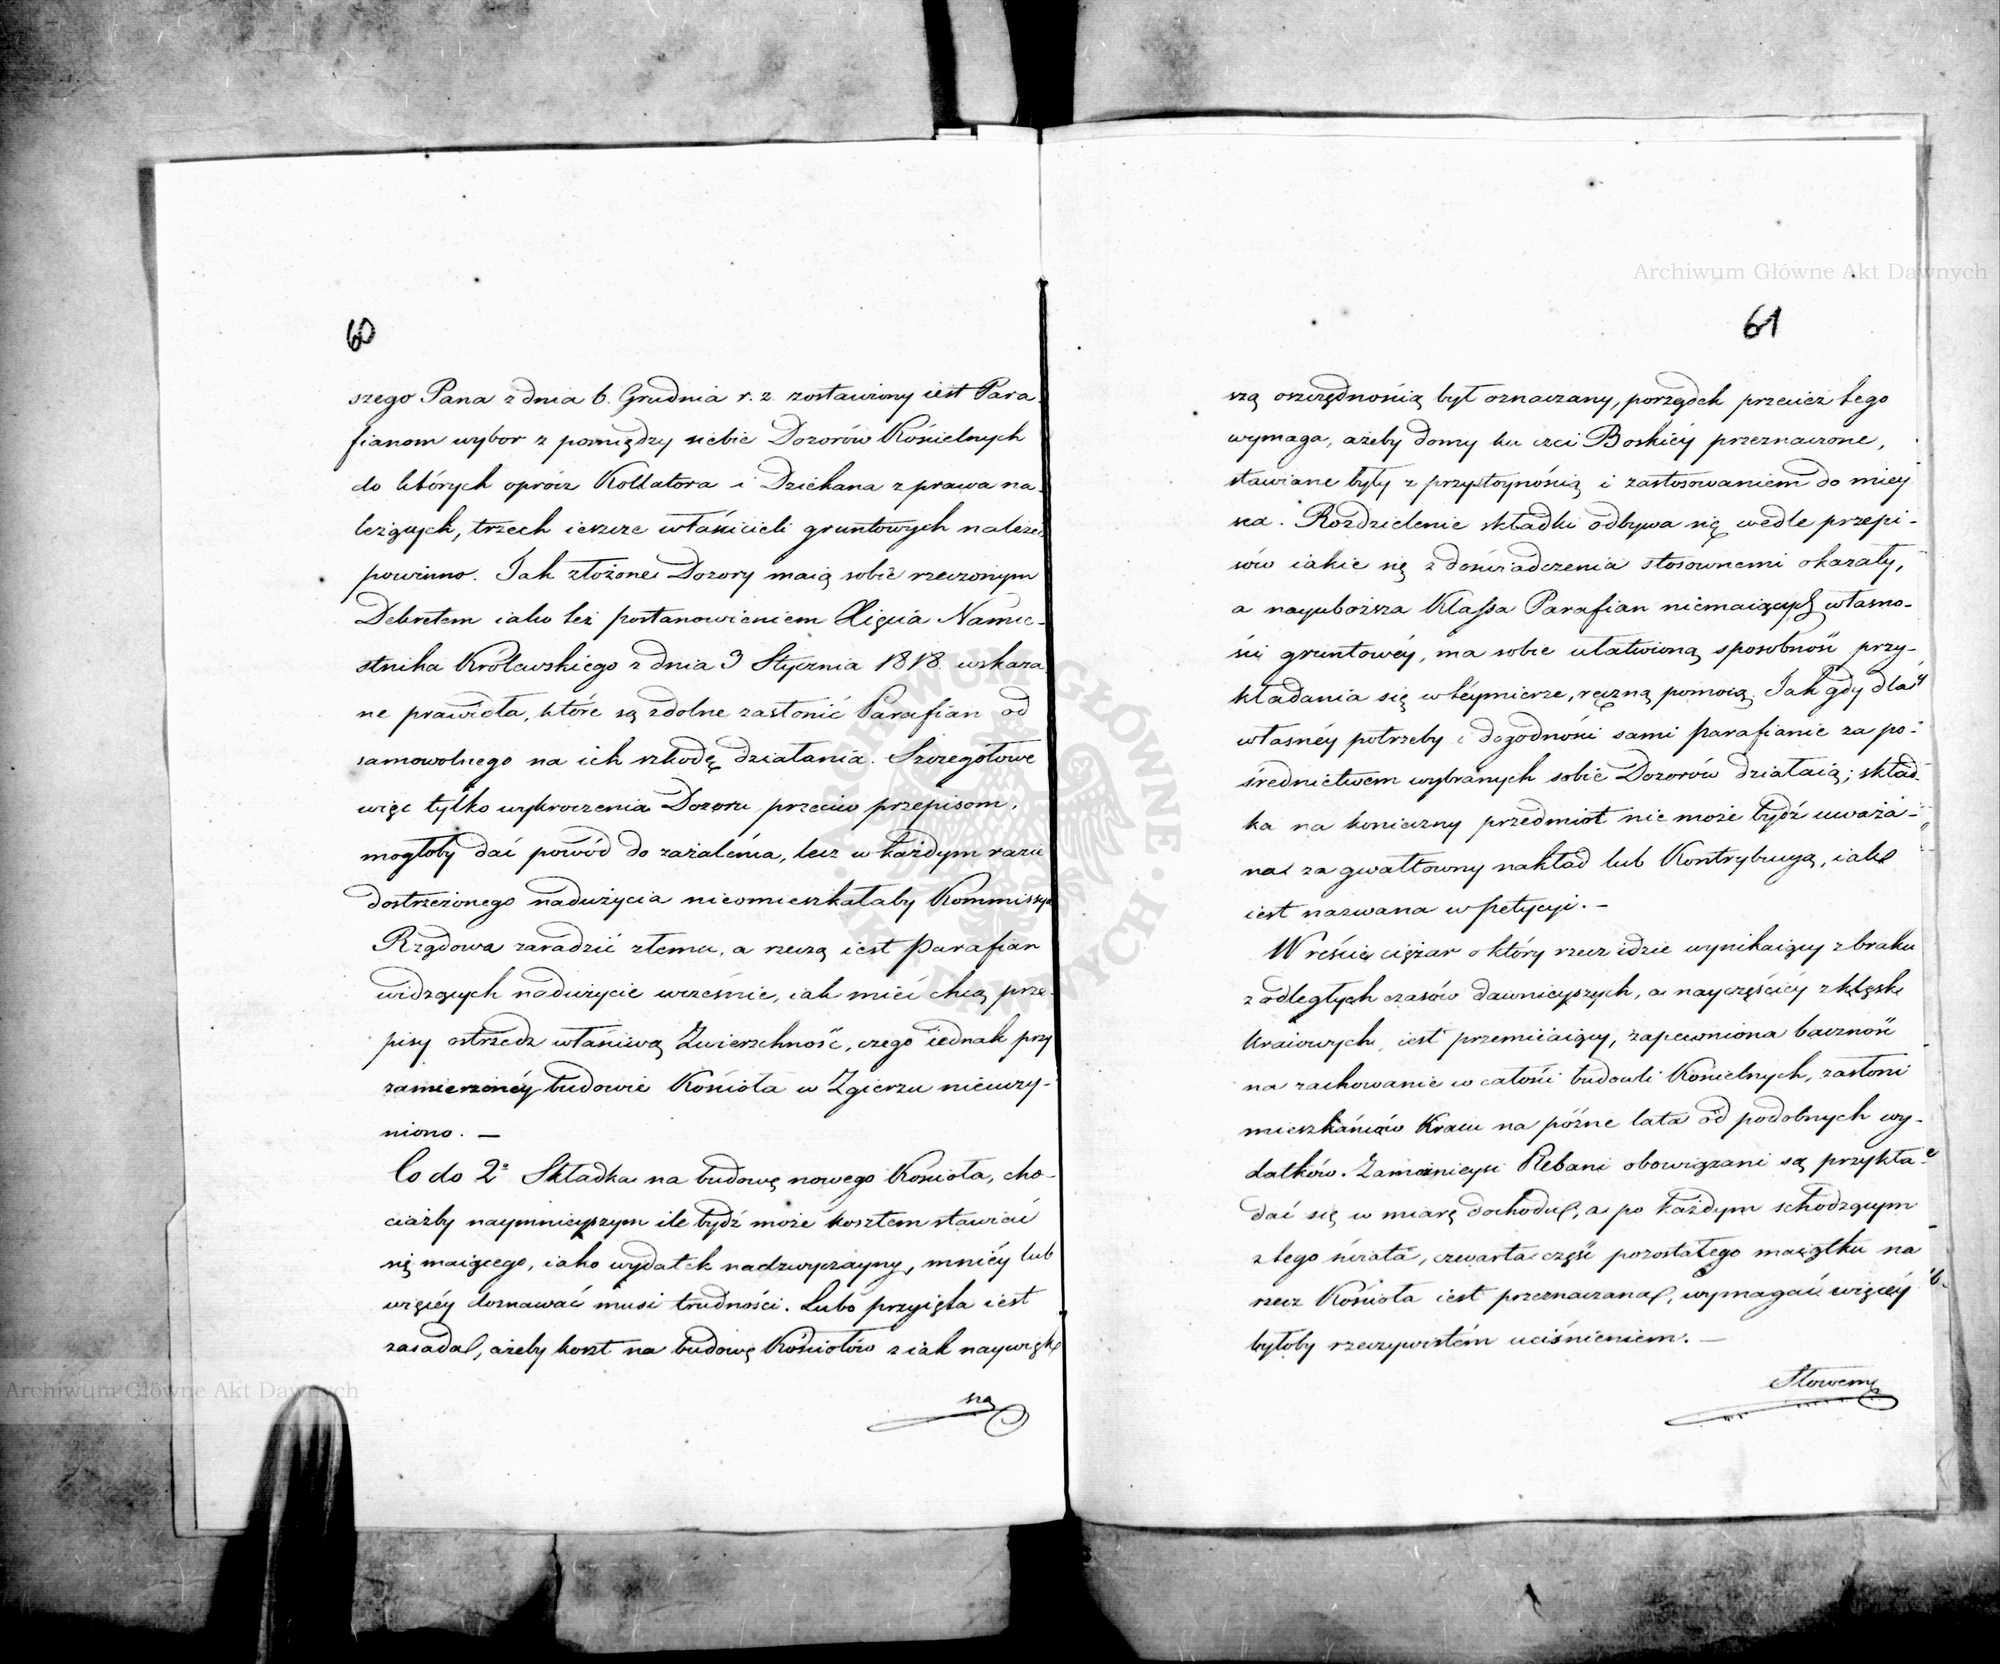 60
szego Pana z dnia 6. Grudnia r. z. zostawiony iest Para-
fianom wybor z pomiędzy siebie Dozorów Kościelnych
do których oprócz Kollatora i Dziekana z prawa na-
leżących, trzech ieszcze właścicieli gruntowych należeć
powinno. Tak złożone Dozory maią sobie rzeczonym
Dekretem iako też postanowieniem Xięcia Namie-
stnika Królewskiego z dnia 3 Stycznia 1818. wskaza
ne prawidła, które są zdolne zasłonić Parafian od
samowolnego na ich szkodę działania. Szczegółowe
więc tylko wykroczenia Dozoru przeciw przepisom,
mogłoby dać powód do zażalenia, lecz w każdym razie
dostrzeżonego nadużycia nieomieszkałaby Kommissya
Rządowa zaradzić złemu, a rzeczą iest Parafian
widzących nadużycie wcześnie, iak mieć chcą prze-
pisy ostrzedz właściwą Zwierzchność, czego iednak przy
zamierzonéy budowie Kościoła w Zgierzu nieuczy-
niono. —
Co do 2º Składka na budowę nowego Kościoła, cho-
ciażby naymnieyszym ile bydź może kosztem stawiać
się maiącego, iako wydatek nadzwyczayny, mniéy lub
więcéy doznawać musi trudności. Lubo przyięta iest
zasada, ażeby koszt na budowę Kościołów z iak naywięk
szą
Archiwum Główne Akt Dawnych
61
szą oszczędnością był oznaczany, porządek przecież tego
wymaga, ażeby domy ku czci Boskiéy przeznaczone,
stawiane były z przystoynością i zastosowaniem do miey
sca. Rozdzielenie składki odbywa się wedle przepi-
sów iakie się z doświadczenia stosownemi okazały,
a nayuboższa Klassa Parafian niemaiących własno-
ści gruntowéy, ma sobie ułatwioną sposobność przy-
kładania się w téymierze, ręczną pomocą. Jak gdy dla
własnéy potrzeby i dogodności sami parafianie za po-
średnictwem wybranych sobie Dozorów działaią; skład
ka na konieczny przedmiot nie może bydź uważa-
na za gwałtowny nakład lub Kontrybucyą, iak
iest nazwana w petycyi. —
Wreście ciężar o który rzecz idzie wynikaiący z braku
z odległych czasów dawnieyszych, a nayczęściéy z klęsk
kraiowych, iest przemiiaiący, zapewniona baczność
na zachowanie w całości budowli Kościelnych, zasłoni
mieszkańców Kraiu na późne lata od podobnych wy-
datków. Zamożnieysi Plebani obowiązani są przykła-
dać się w miarę dochodu, a po każdym schodzącym
z tego świata, czwarta część pozostałego maiątku na
rzecz Kościoła iest przeznaczana, wymagać więcéy
byłoby rzeczywistém uciśnieniem. —
Słowem
Archiwum Główne Akt Dawnych
ARCHIWUM GŁÓWNE AKT DAWNYCH